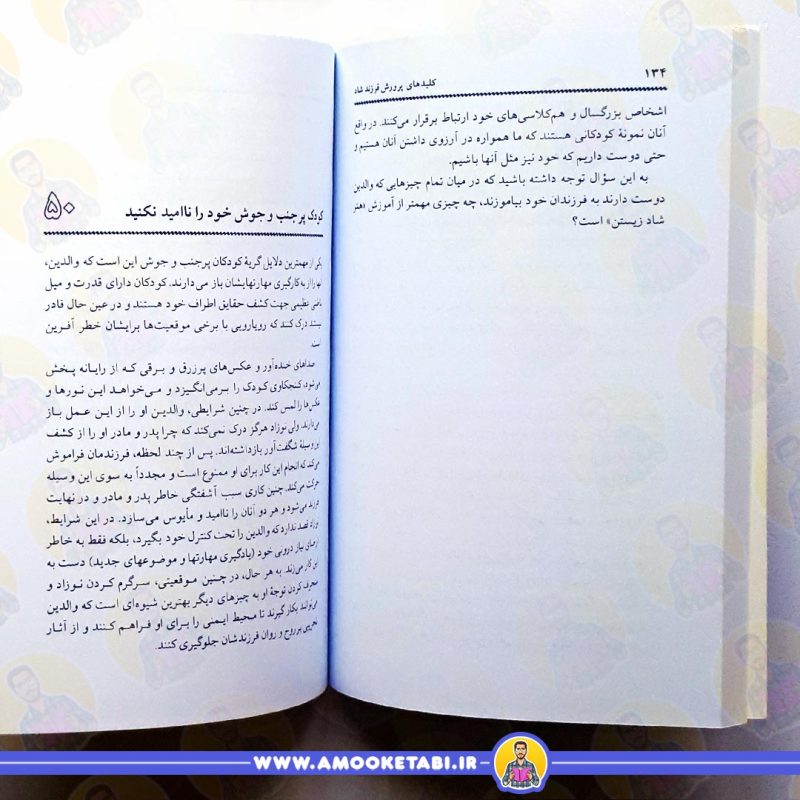 ۱۳۴
کلیدهای پرورش فرزند شاد
اشخاص بزرگسال و هم‌کلاسی‌های خود ارتباط برقرار می‌کنند. در واقع
آنان نمونهٔ کودکانی هستند که ما همواره در آرزوی داشتن آنان هستیم و
حتی دوست داریم که خود نیز مثل آنها باشیم.
به این سؤال توجه داشته باشید که در میان تمام چیزهایی که والدین
دوست دارند به فرزندان خود بیاموزند، چه چیزی مهمتر از آموزش «هنر
شاد زیستن» است؟
۵۰
کودک پرجنب و جوش خود را ناامید نکنید
یکی از مهمترین دلایل گریهٔ کودکان پرجنب و جوش این است که والدین،
آنها را از به کارگیری مهارتهایشان باز می‌دارند. کودکان دارای قدرت و میل
باطنی عظیمی جهت کشف حقایق اطراف خود هستند و در عین حال قادر
نیستند درک کنند که رویارویی با برخی موقعیت‌ها برایشان خطر آفرین
است.
صداهای خنده‌آور و عکس‌های پرزرق و برقی که از رایانه پخش
می‌شود، کنجکاوی کودک را برمی‌انگیزد و می‌خواهد این نورها و
عکس‌ها را لمس کند. در چنین شرایطی، والدین او را از این عمل باز
می‌دارند. ولی نوزاد هرگز درک نمی‌کند که چرا پدر و مادر او را از کشف
این وسیلهٔ شگفت‌آور بازداشته‌اند. پس از چند لحظه، فرزندمان فراموش
می‌کند که انجام این کار برای او ممنوع است و مجدداً به سوی این وسیله
حرکت می‌کند. چنین کاری سبب آشفتگی خاطر پدر و مادر و در نهایت
فرزند می‌شود و هر دو آنان را ناامید و مأیوس می‌سازد. در این شرایط،
نوزاد قصد ندارد که والدین را تحت کنترل خود بگیرد، بلکه فقط به خاطر
ارضای نیاز درونی خود (یادگیری مهارتها و موضوعهای جدید) دست به
این کار می‌زند. به هر حال، در چنین موقعیتی، سرگرم کردن نوزاد و
منحرف کردن توجهٔ او به چیزهای دیگر بهترین شیوه‌ای است که والدین
می‌توانند بکار گیرند تا محیط ایمنی را برای او فراهم کنند و از آثار
تخریبی بر روح و روان فرزندشان جلوگیری کنند.
WWW.AMOOKETABI.IR